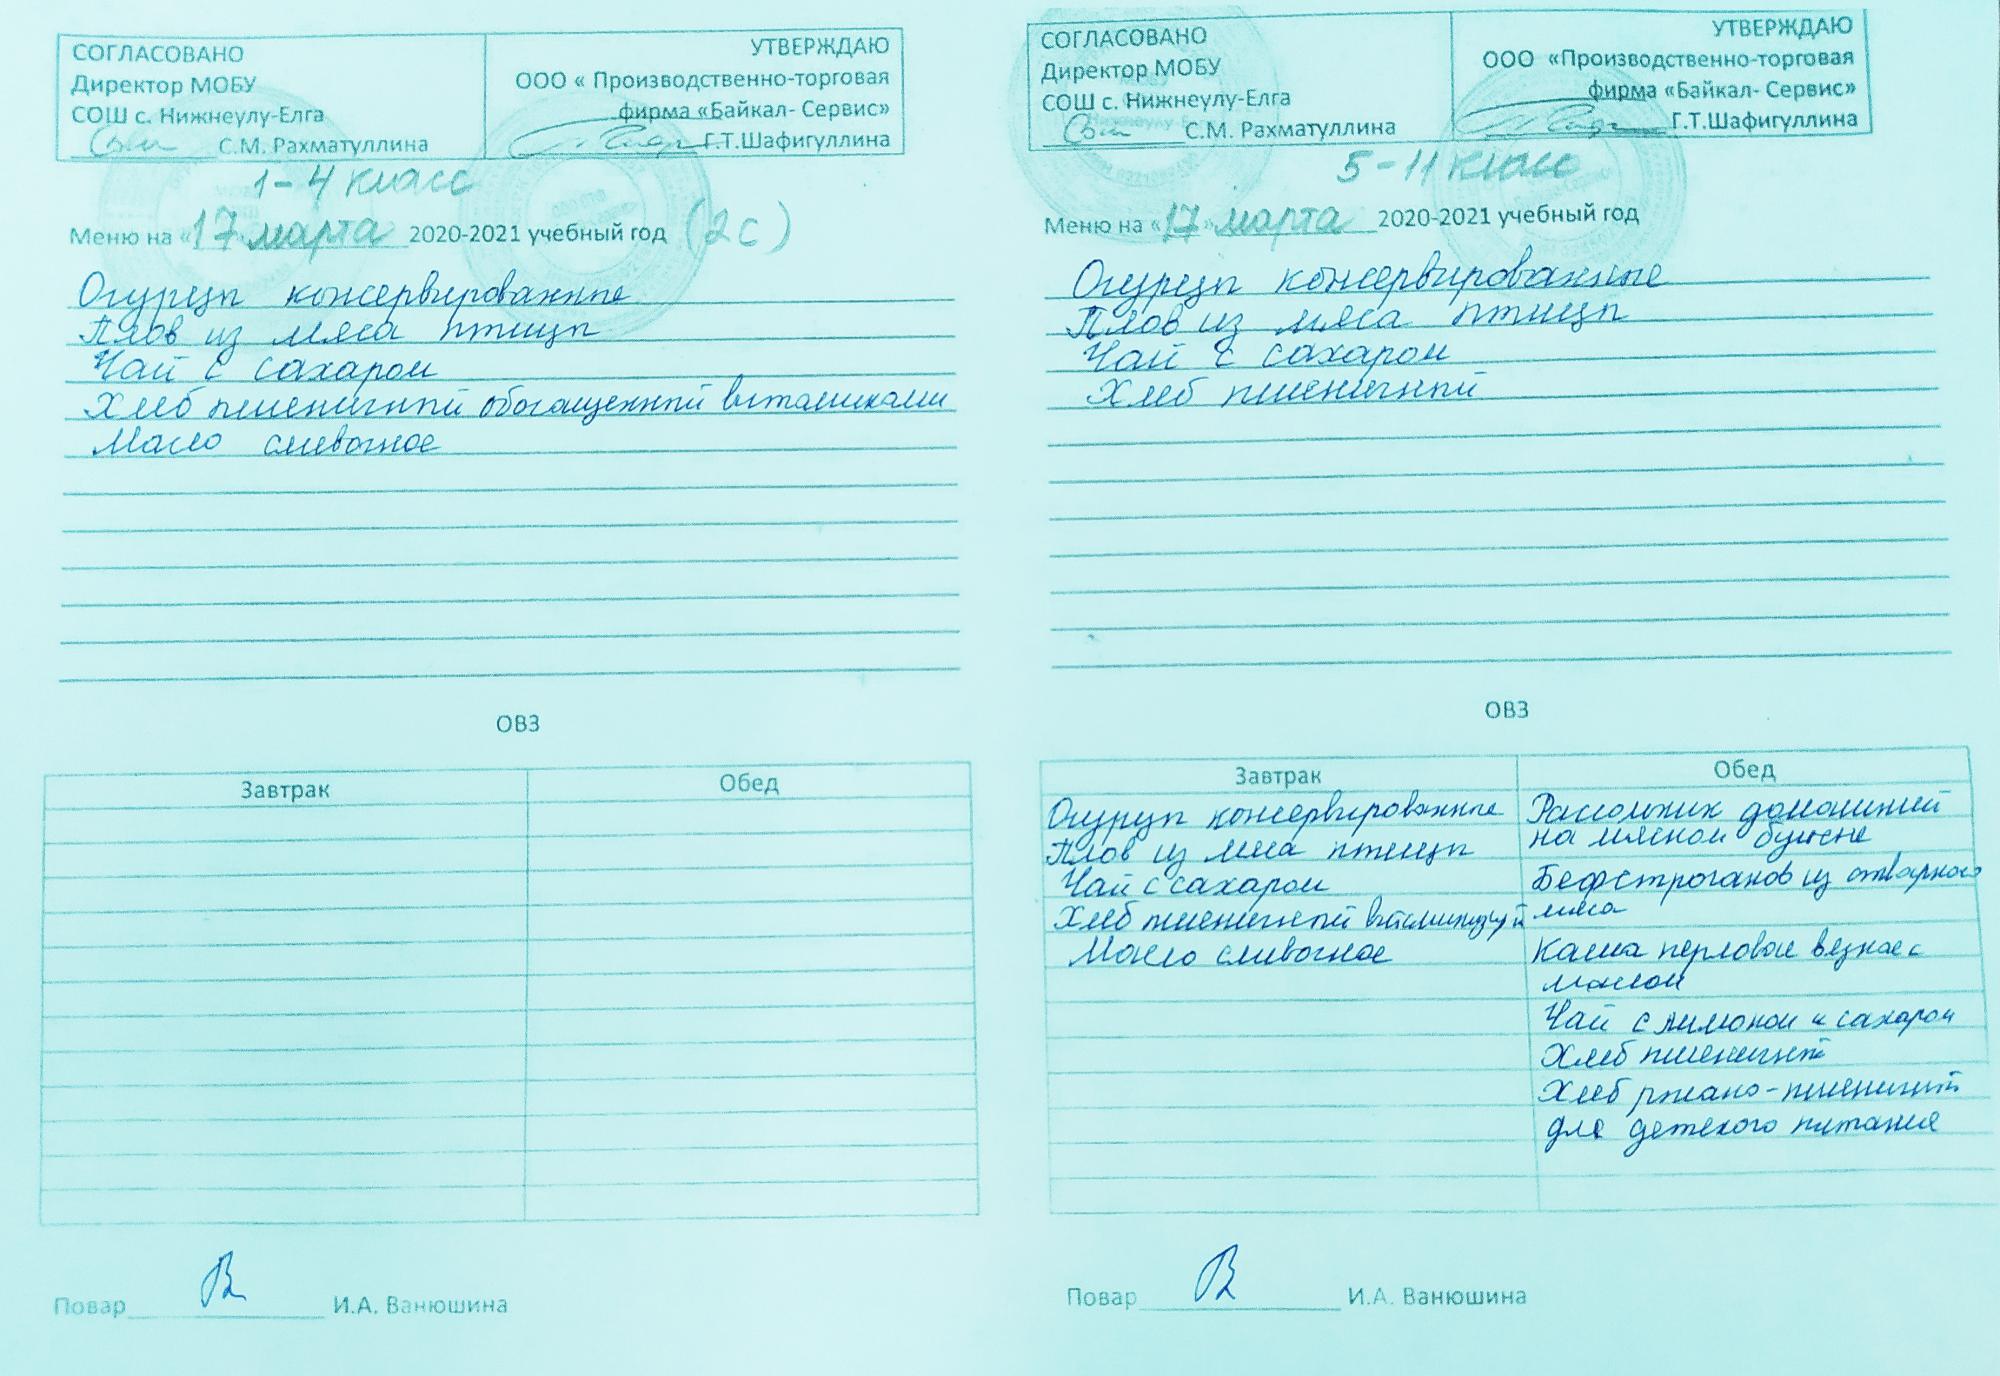 СОГЛАСОВАНО
Директор МОБУ
СОШ с. Нижнеулу-Елга
С.М. Рахматуллина
УТВЕРЖДАЮ
ООО « Производственно-торговая
фирма «Байкал- Сервис»
Г.Т.Шафигуллина
1-4 класс
Меню на «17» марта 2020-2021 учебный год (2с)
Огурцы консервированные
Плов из мяса птицы
Чай с сахаром
Хлеб пшеничный обогащенный витаминами
Масло сливочное
ОВЗ
Завтрак
Обед
Повар И.А. Ванюшина
СОГЛАСОВАНО
Директор МОБУ
СОШ с. Нижнеулу-Елга
С.М. Рахматуллина
УТВЕРЖДАЮ
ООО «Производственно-торговая
фирма «Байкал- Сервис»
Г.Т.Шафигуллина
5-11 класс
Меню на «17» марта 2020-2021 учебный год
Огурцы консервированные
Плов из мяса птицы
Чай с сахаром
Хлеб пшеничный
ОВЗ
Завтрак
Огурцы консервированные
Плов из мяса птицы
Чай с сахаром
Хлеб пшеничный
Масло сливочное
Обед
Рассольник домашний
на мясном бульоне
Бефстроганов из отварного
мяса
Каша перловая вязкая с
маслом
Чай с лимоном и сахаром
Хлеб пшеничный
Хлеб ржано-пшеничный
для детского питания
Повар И.А. Ванюшина